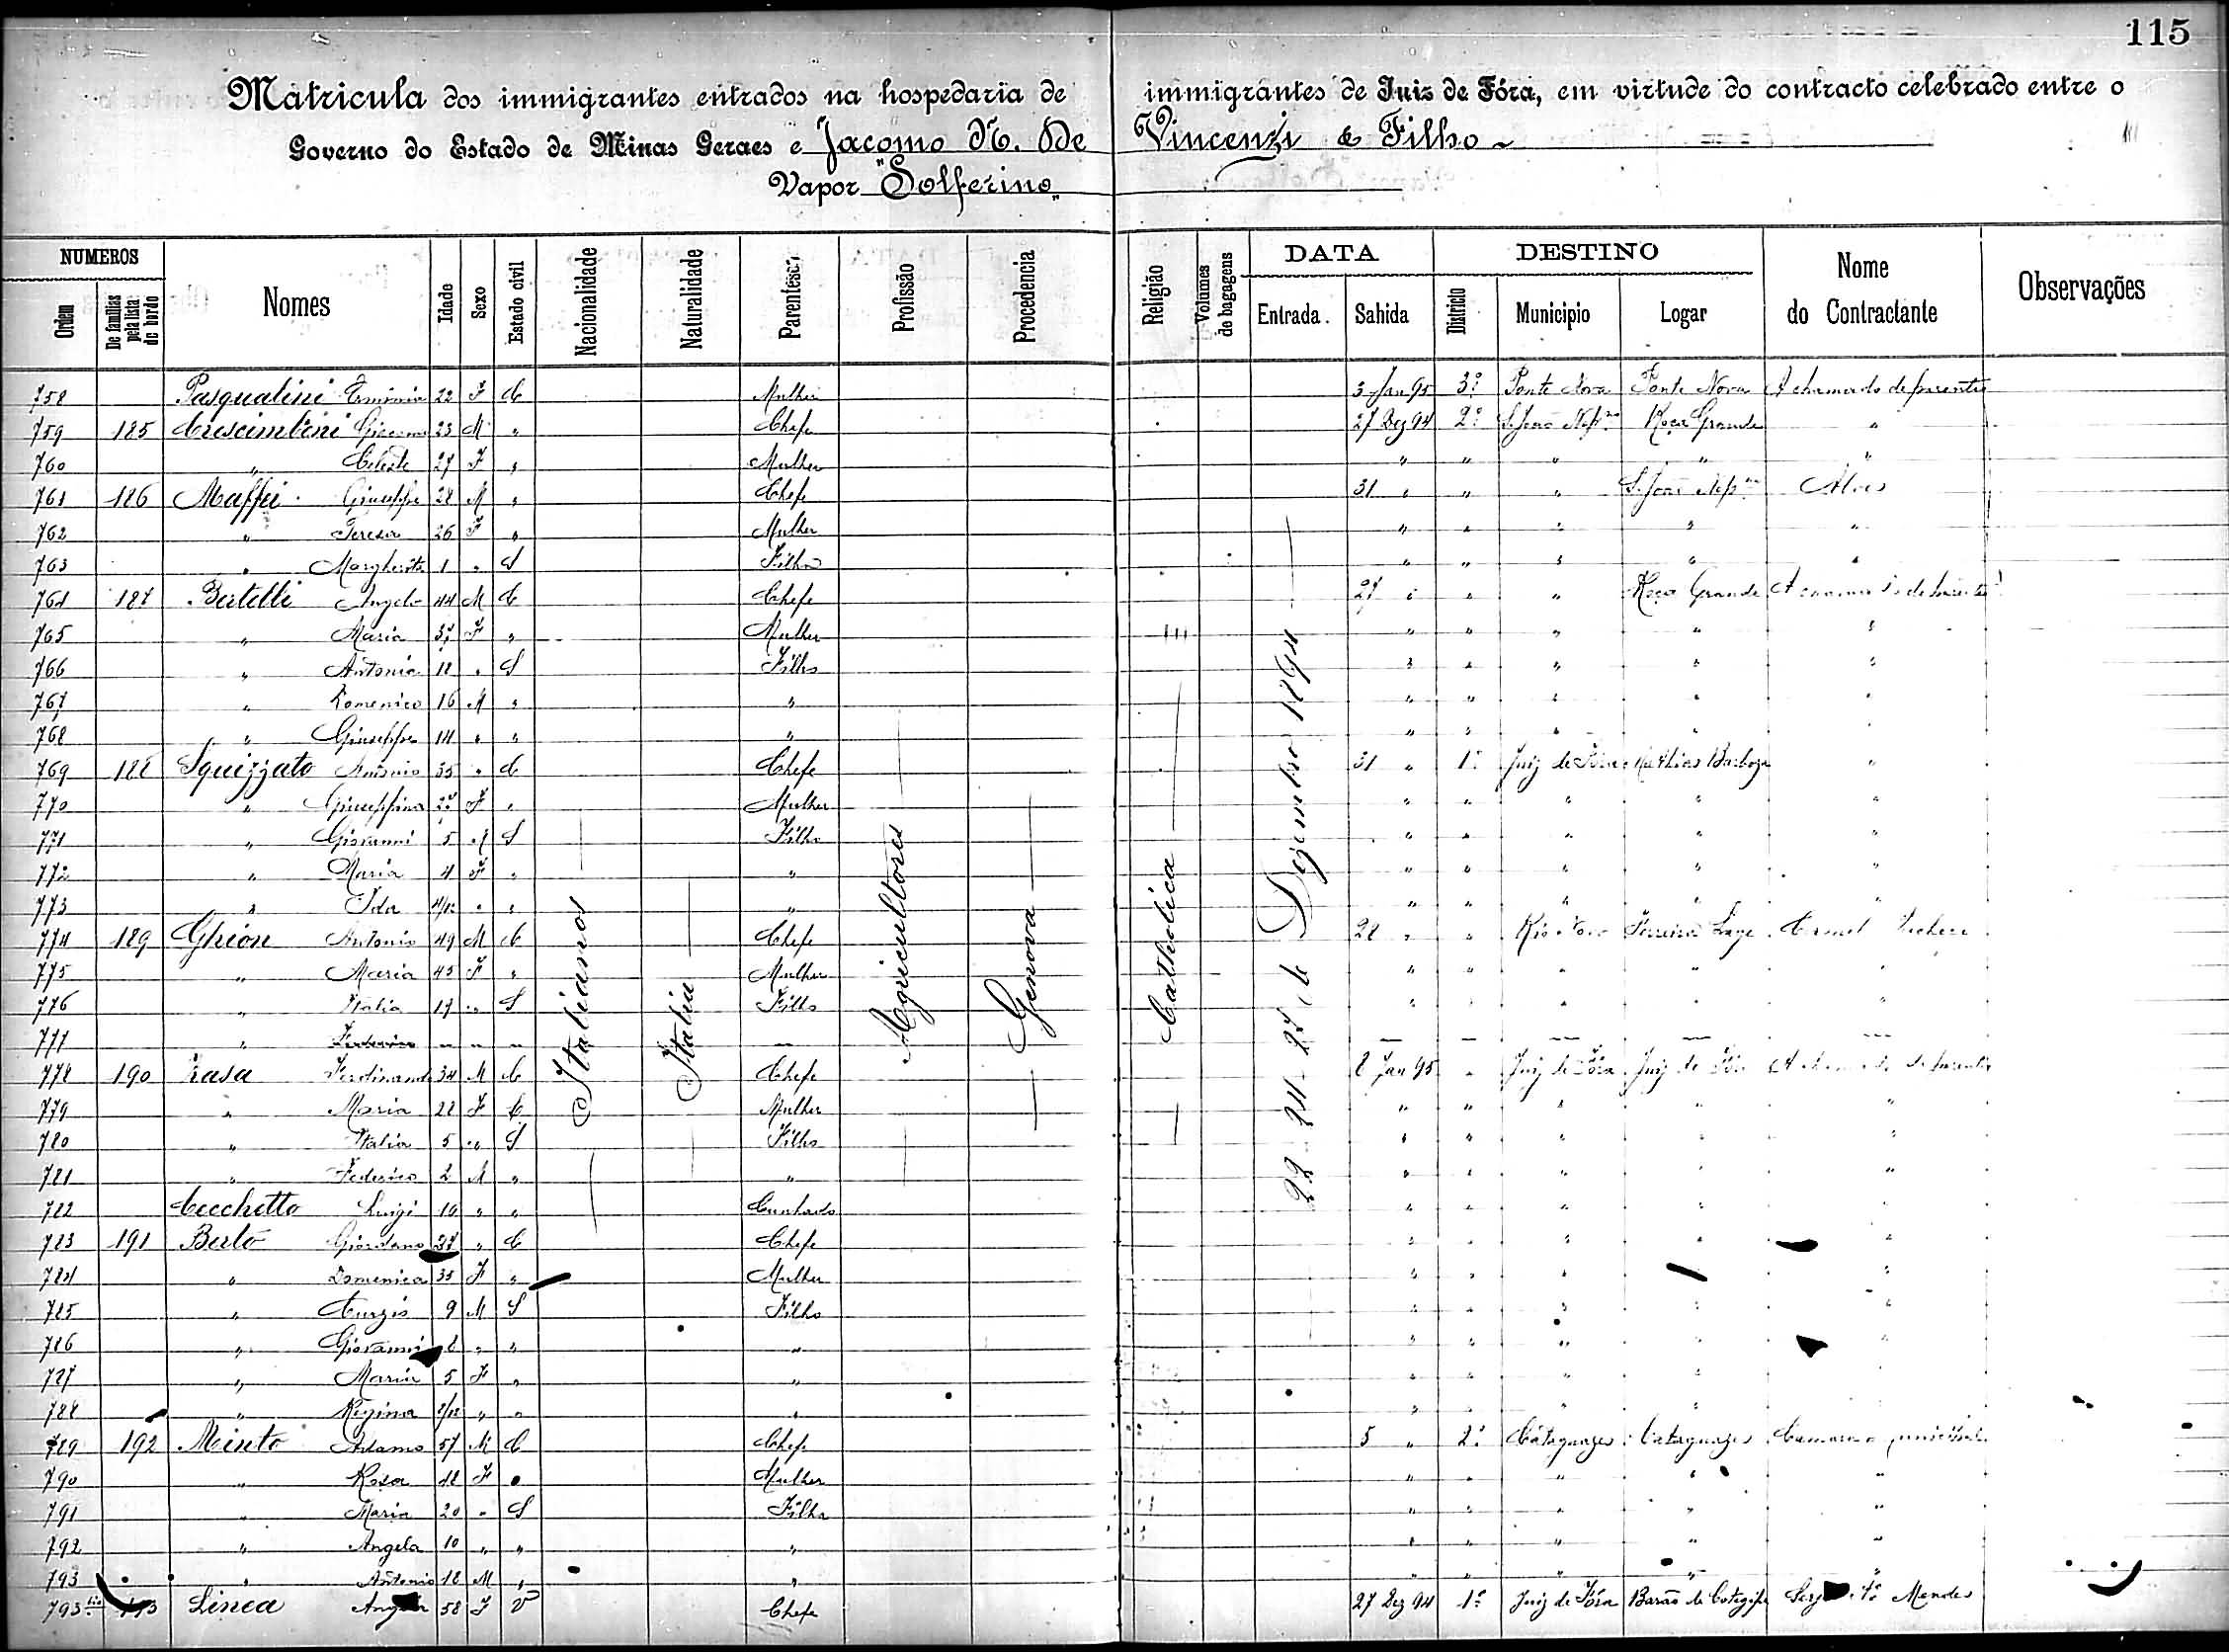 115
Matricula dos immigrantes entrados na hospedaria de immigrantes de Juiz de Fóra, em virtude do contracto celebrado entre o
Governo do Estado de Minas Geraes e Jacomo N. De Vincenzi & Filho
Vapor "Solferino"
NUMEROS DATA DESTINO
Ordem De familias pela lista de bordo Nomes Idade Sexo Estado civil Nacionalidade Naturalidade Parentesco Profissão Procedencia Religião Volumes de bagagens Entrada. Sahida Districto Municipio Logar Nome do Contractante Observações
Italianos Italia Agricultores Genova Catholica 22-24-27 de Dezembro 1894
758 Pasqualini Erminia 22 F C Mulher 3 Jan 95 3º Ponte Nova Ponte Nova A chamado de parentes
759 185 Crescimbeni Giacomo 23 M " Chefe 27 Dez 94 2º S. João Nep.no Roça Grande "
760 " Celeste 27 F " Mulher " " " " "
761 186 Maffei Giuseppe 28 M " Chefe 31 " " " S. João Nep.no
762 " Teresa 26 F " Mulher " " " " "
763 " Margherita 1 " S Filho " " " " "
764 187 Bertelli Angelo 44 M C Chefe 27 " " " Roça Grande A chamado de parentes
765 " Maria 37 F " Mulher " " " " "
766 " Antonia 18 " S Filho " " " " "
767 " Domenico 16 M " " " " " " "
768 " Giuseppe 14 " " " " " " " "
769 188 Squizzato Antonio 35 " C Chefe 31 " 1º Juiz de Fóra Mathias Barboza "
770 " Giuseppina 27 F " Mulher " " " " "
771 " Giovanni 5 M S Filho " " " " "
772 " Maria 4 F " " " " " " "
773 " Ida 4/12 " " " " " " " "
774 189 Ghion Antonio 49 M C Chefe 28 " " Rio Novo Ferreira Lage
775 " Maria 43 F " Mulher " " " " "
776 " Italia 17 " S Filho " " " " "
777 " — — — — — — — — —
778 190 Rasa Ferdinando 34 M C Chefe 8 Jan 95 " Juiz de Fóra Juiz de Fóra A chamado de parentes
779 " Maria 28 F C Mulher " " " " "
780 " Italia 5 " S Filho " " " " "
781 " Federico 2 M " " " " " " "
782 Cecchetto Luigi 10 " " Cunhado " " " " "
783 191 Berto Giordano 37 " C Chefe " " " " "
784 " Domenica 35 F " Mulher " " " " "
785 " 9 M S Filho " " " " "
786 " Giovanni 8 " " " " " " " "
787 " Maria 5 F " " " " " " "
788 " Regina 8/12 " " " " " " " "
789 192 Minto Adamo 57 M C Chefe 5 " 2º Cataguazes Cataguazes Camara municipal
790 " Rosa 48 F " Mulher " " " " "
791 " Maria 20 " S Filha " " " " "
792 " Angela 10 " " " " " " " "
793 " Antonio 18 M " " " " " " "
793 bis 193 Linea 58 F V Chefe 27 Dez 94 1º Juiz de Fóra Barão de Cotegipe Mendes